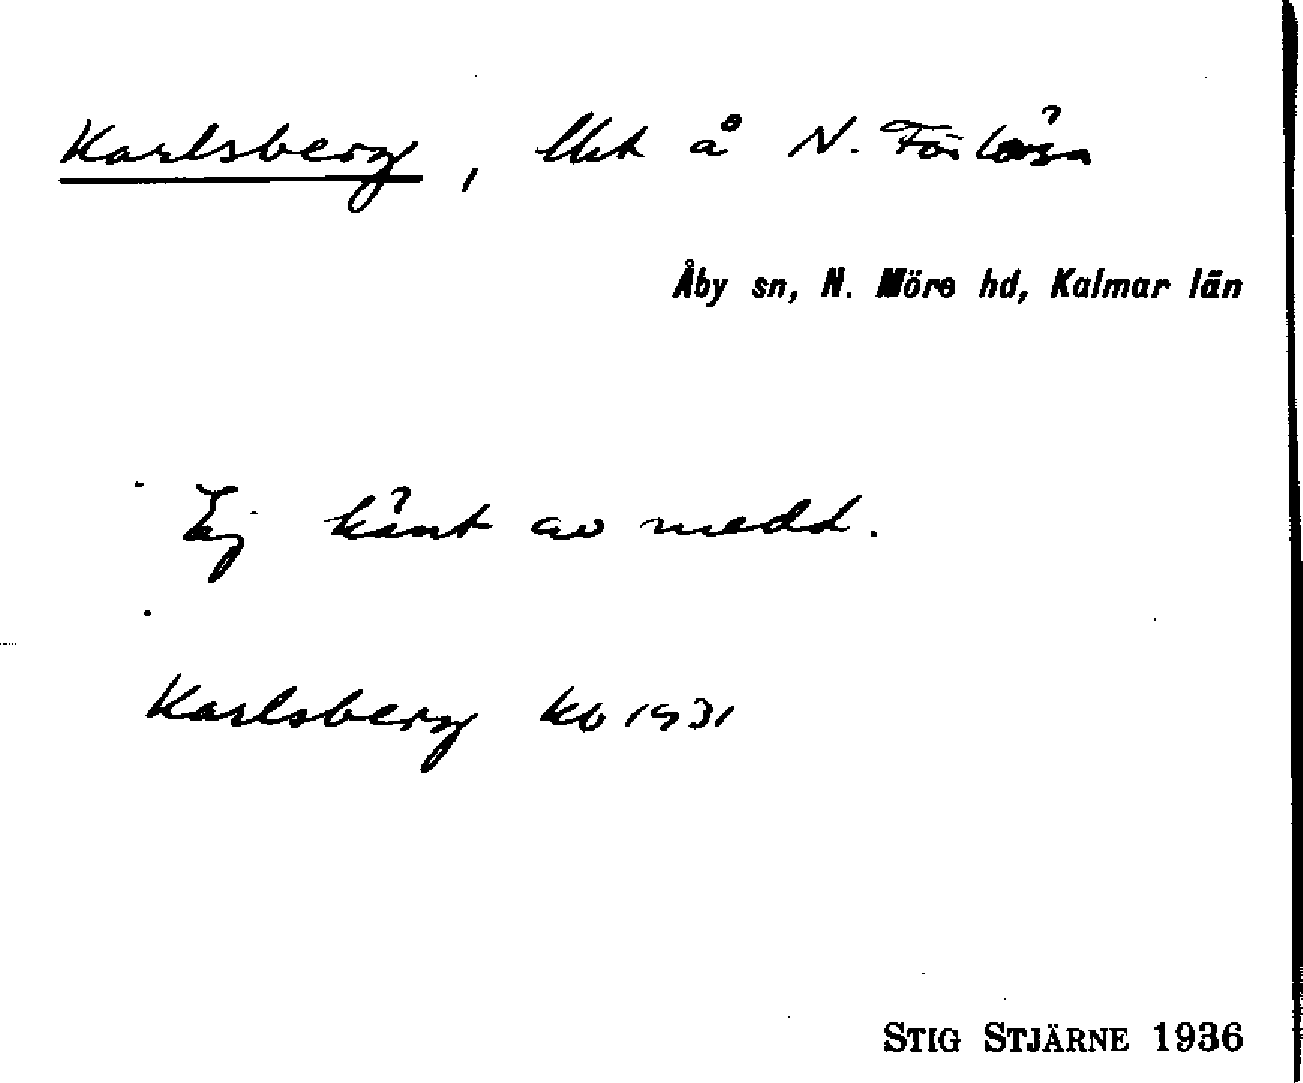 Karlsberg, lht å N. Förlösa
Åby sn, N. Möre hd, Kalmar län
Ej känt av medd.
Karlsberg kb 1931
STIG STJÄRNE 1936